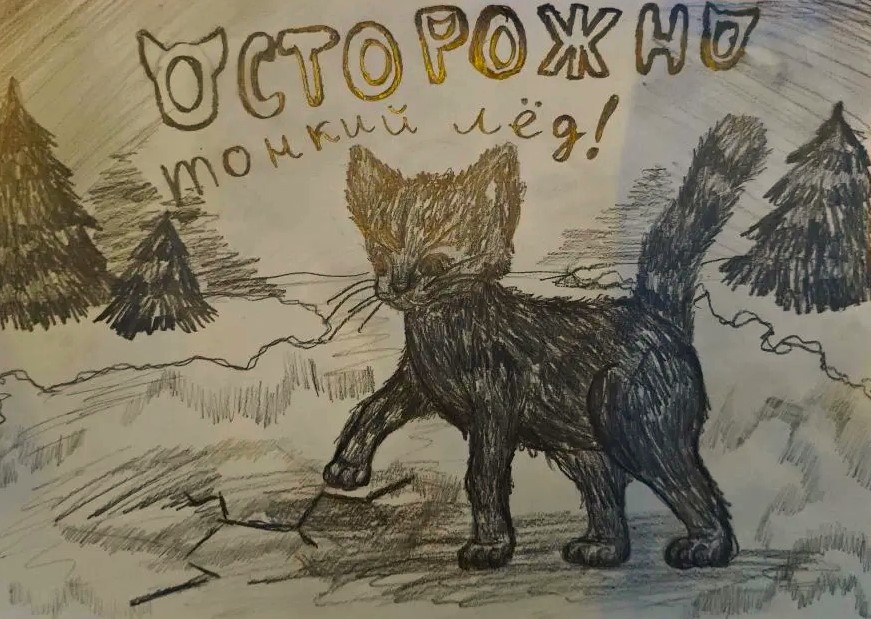 ОСТОРОЖНО
тонкий лёд!